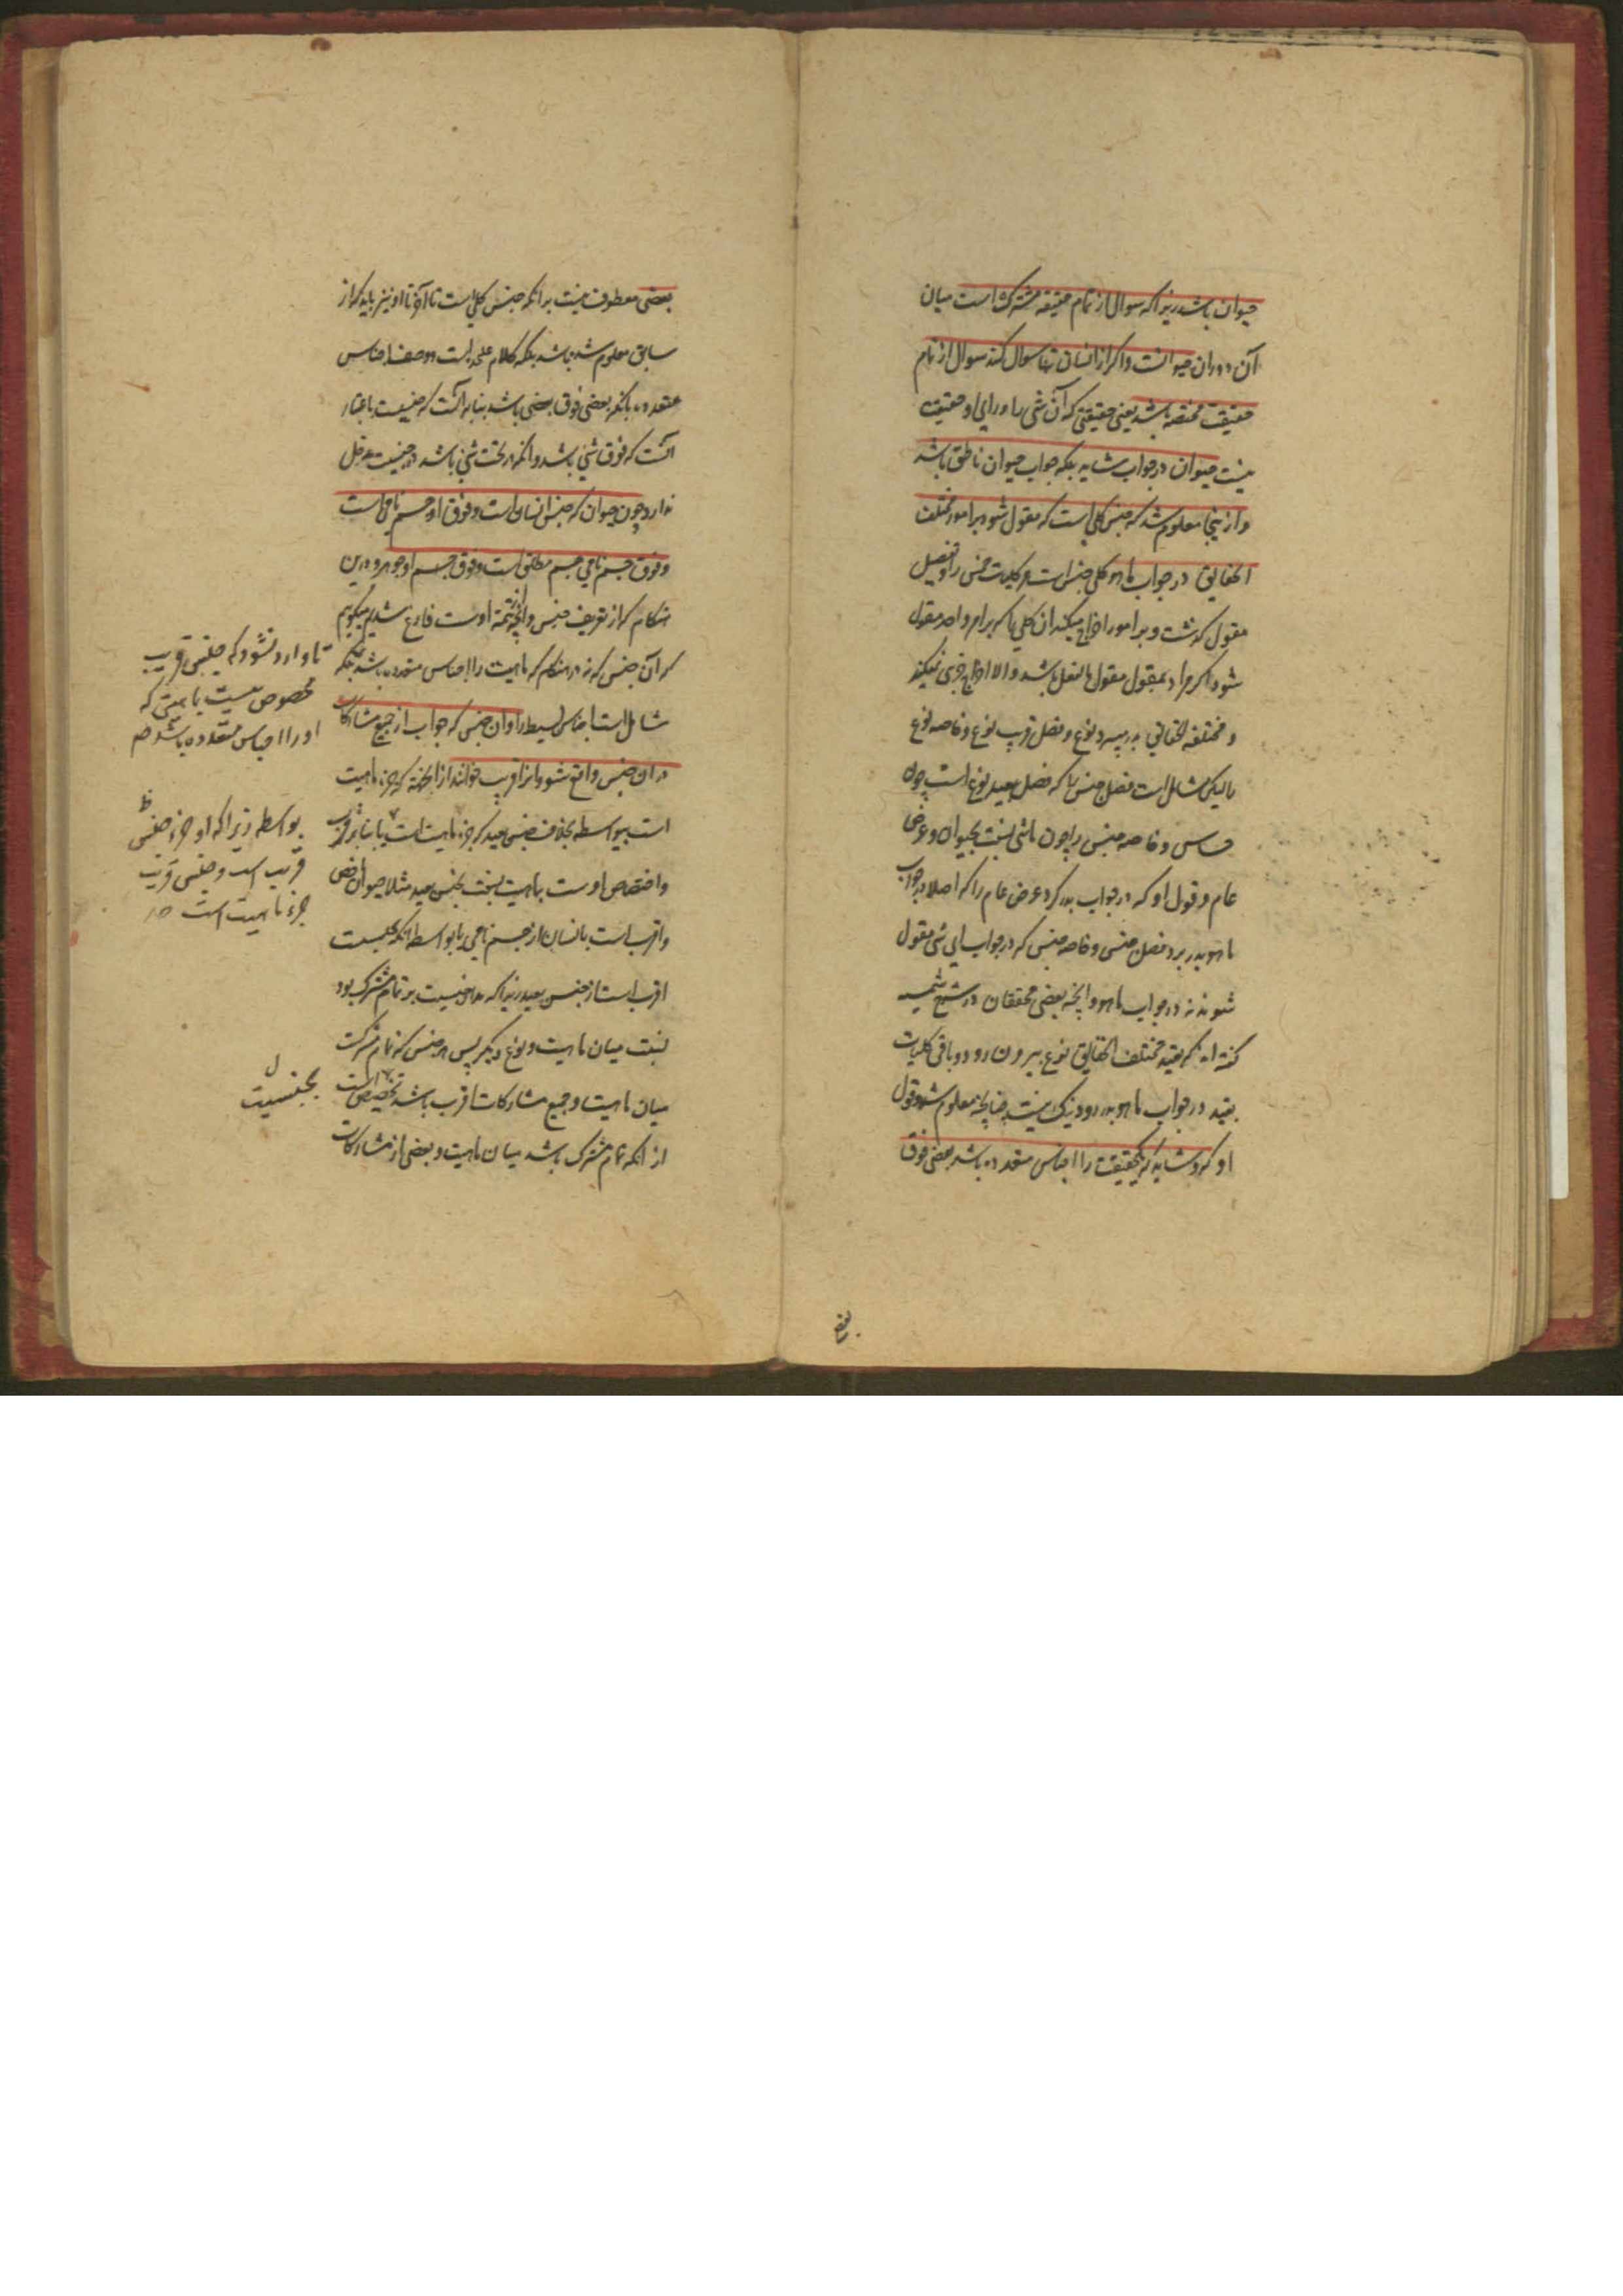 حیوان باشد زیرا که سوال از تمام حقیقه مشترکست میان
آن و دران حیوانست و اگر از انسان تنها سوال کنند سوال از تمام
حقیقت مختصه باشد یعنی حقیقتی که آن شی را ورای او حقیقت
نیست حیوان در جواب نشاید بلکه جواب حیوان ناطق باشد
و ازینجا معلوم شد که جنس کلی است که مقول شود بر امور مختلف
الحقایق در جواب ما هو کلی جنس است و کلیات خمس را و تفصیل
مقول گذشت و بر امور اخراج میکند ان کلی را که بر امر واحد مقول
شود اگر مراد بمقول مقول بالفعل باشد و الا اخراج جزی نمیکند
و مختلفة الحقایق بدر میبرد نوع و فصل قریب نوع و خاصه نوع
را لیکن شامل است فصل جنس را که فصل بعید نوع است چون
حساس و خاصه جنس را چون ماشی نسبت بحیوان و عرض
عام و قول او که در جواب بدر کرد عرض عام را که اصلا در جواب
ما هو بدر برد فصل جنس و خاصه جنس که در جواب ای شی مقول
شوند نه در جواب ما هو و آنچه بعضی محققان در شرح شمسیه
گفته اند که بقید مختلف الحقایق نوع بیرون رود و باقی کلیات
بقید در جواب ما هو بدر رود نیک نیست چنانچه معلوم شد و قول
او که و شاید که یکحقیقت را اجناس متعدده باشد بعضی فوق
بعضی
بعضی معطوف نیست بر انکه جنس کلی است تا آخر تا او نیز باید که از
سابق معلوم شده باشد بلکه کلام علیحده است در وصف اجناس
متعدده بانکه بعضی فوق بعضی باشد بنابر آنست که جنسیت باعتبار
آنست که فوق شی باشد و انکه در تحت شی باشد در جنسیت دخل
ندارد چون حیوان که جنس انسان است و فوق او جسم نامی است
و فوق جسم نامی جسم مطلق است و فوق جسم او جوهر و درین
هنگام که از تعریف جنس و آنچه از تتمه اوست فارغ شدیم میگوییم
که آن جنس که نه در هنگام که ماهیت را اجناس متعدده باشد بلکه
شامل است اجناس بسیط را و ان جنس که جواب از جمیع مشارکات
در ان جنس واقع شود انرا قریب خوانند از آنجهة که جزء ماهیت
است بیواسطه بخلاف جنس بعید که جزء ماهیت است یا بنابر قرب
و اختصاص اوست بماهیت نسبت بجنس بعید مثلا حیوان اخص
و اقرب است بانسان از جسم نامی یا بواسطه انکه
اقرب است از جنس بعید زیرا که مدار جنسیت بر تمام مشترک بود
نسبت میان ماهیت و نوع دیگر پس هر جنس که تمام مشترکست
میان ماهیت و جمیع مشارکات اقرب باشد
از انکه تمام مشترک باشد میان ماهیت و بعضی از مشارکات
تا وارد نشود که جنس قریب
مخصوص نیست بماهیتی که
او را اجناس متعدده باشد ۱۲
بواسطه زیرا که او جزء جنس
قریب است و جنس قریب
جزء ماهیت است ۱۲
بجنسیت